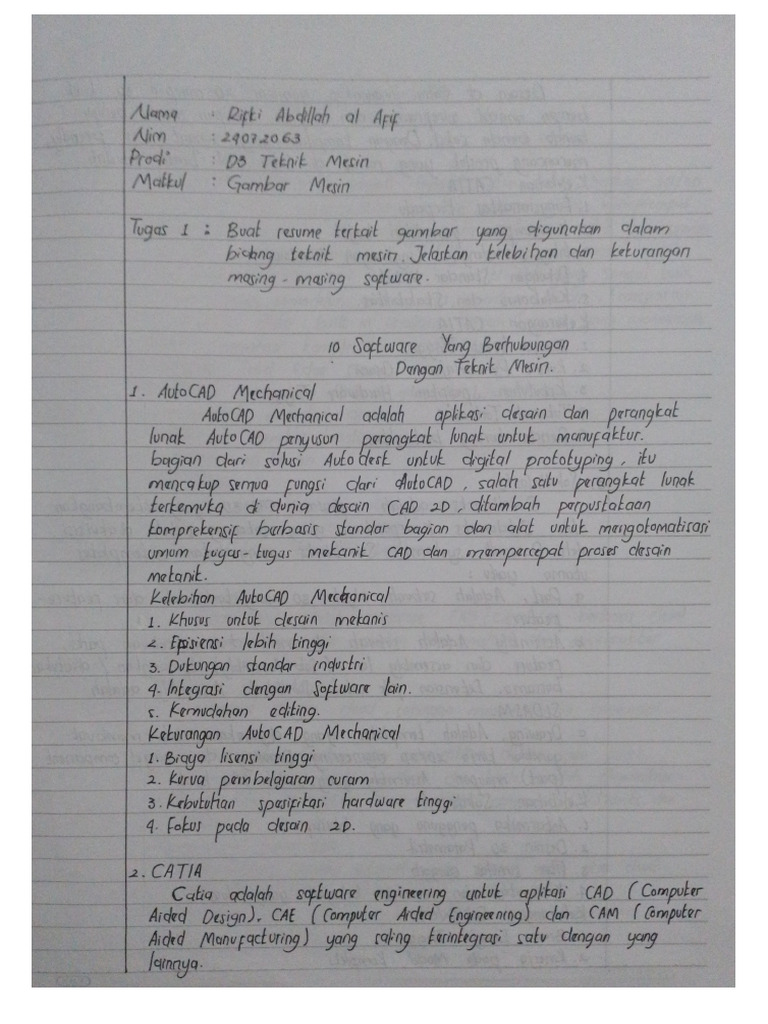 Nama : Rifki Abdillah al Afif
Nim : 24072063
Prodi : D3 Teknik Mesin
Matkul : Gambar Mesin
Tugas 1 : Buat resume terkait gambar yang digunakan dalam
bidang teknik mesin. Jelaskan kelebihan dan kekurangan
masing-masing software.
10 Software Yang Berhubungan
Dengan Teknik Mesin.
1. AutoCAD Mechanical
AutoCAD Mechanical adalah aplikasi desain dan perangkat
lunak AutoCAD penyusun perangkat lunak untuk manufaktur.
bagian dari solusi Autodesk untuk digital prototyping, itu
mencakup semua fungsi dari AutoCAD, salah satu perangkat lunak
terkemuka di dunia desain CAD 2D, ditambah perpustakaan
komprehensif berbasis standar bagian dan alat untuk mengotomatisasi
umum tugas-tugas mekanik CAD dan mempercepat proses desain
mekanik.
Kelebihan AutoCAD Mechanical
1. Khusus untuk desain mekanis
2. Efisiensi lebih tinggi
3. Dukungan standar industri
4. Integrasi dengan Software lain.
5. Kemudahan editing.
Kekurangan AutoCAD Mechanical
1. Biaya lisensi tinggi
2. Kurva pembelajaran curam
3. Kebutuhan spesifikasi hardware tinggi
4. Fokus pada desain 2D.
2. CATIA
Catia adalah software engineering untuk aplikasi CAD (Computer
Aided Design), CAE (Computer Aided Engineering) dan CAM (Computer
Aided Manufacturing) yang saling terintegrasi satu dengan yang
lainnya.